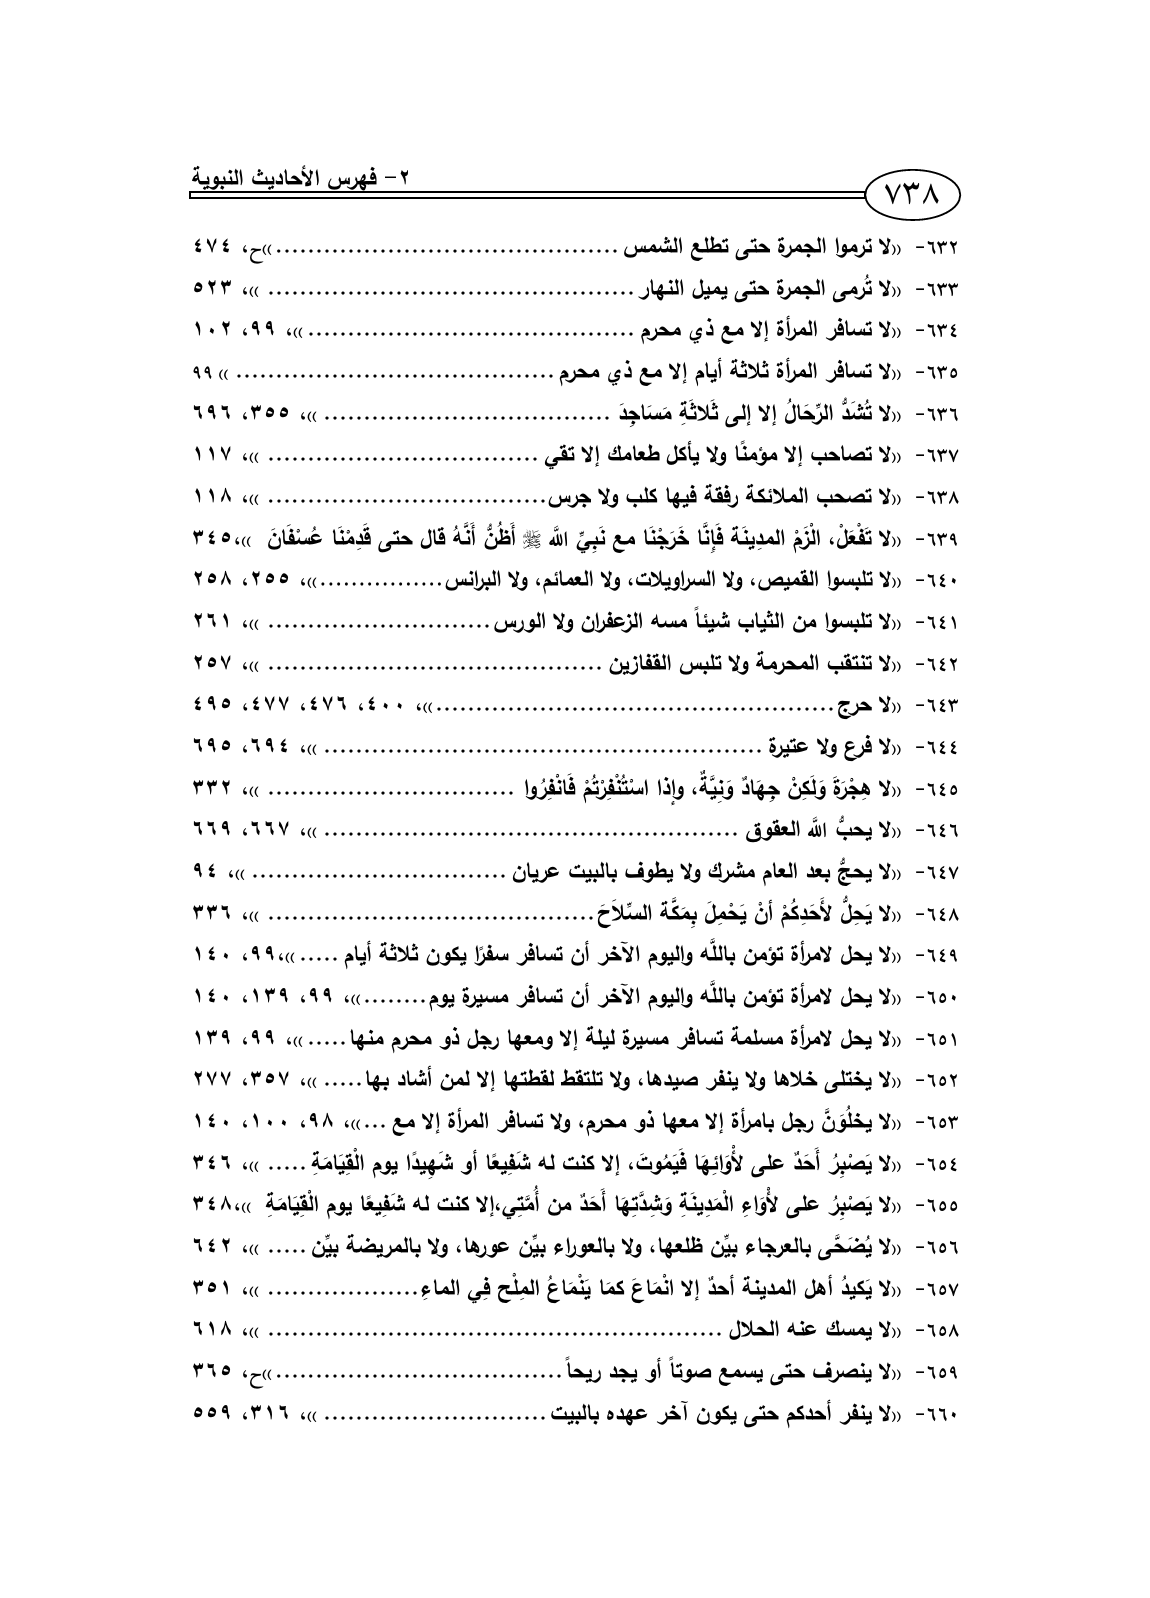 ٧٣٨
٢- فهرس الأحاديث النبوية
٦٣٢- ((لا ترموا الجمرة حتى تطلع الشمس ...........................................))ح، ٤٧٤
٦٣٣- ((لا تُرمى الجمرة حتى يميل النهار .............................................. ))، ٥٢٣
٦٣٤- ((لا تسافر المرأة إلا مع ذي محرم ......................................... ))، ٩٩، ١٠٢
٦٣٥- ((لا تسافر المرأة ثلاثة أيام إلا مع ذي محرم ........................................ )) ٩٩
٦٣٦- ((لا تُشَدُّ الرِّحَالُ إلا إلى ثَلاثَةِ مَسَاجِدَ .................................... ))، ٣٥٥، ٦٩٦
٦٣٧- ((لا تصاحب إلا مؤمنًا ولا يأكل طعامك إلا تقي .................................. ))، ١١٧
٦٣٨- ((لا تصحب الملائكة رفقة فيها كلب ولا جرس................................... ))، ١١٨
٦٣٩- ((لا تَفْعَلْ، الْزَمْ المدِينَة فَإِنَّا خَرَجْنَا مع نَبِيِّ اللَّه ﷺ أَظُنُّ أَنَّهُ قال حتى قَدِمْنَا عُسْفَانَ ))،٣٤٥
٦٤٠- ((لا تلبسوا القميص، ولا السراويلات، ولا العمائم، ولا البرانس................))، ٢٥٥، ٢٥٨
٦٤١- ((لا تلبسوا من الثياب شيئاً مسه الزعفران ولا الورس............................ ))، ٢٦١
٦٤٢- ((لا تنتقب المحرمة ولا تلبس القفازين .......................................... ))، ٢٥٧
٦٤٣- ((لا حرج..................................................))، ٤٠٠، ٤٧٦، ٤٧٧، ٤٩٥
٦٤٤- ((لا فرع ولا عتيرة ....................................................... ))، ٦٩٤، ٦٩٥
٦٤٥- ((لا هِجْرَةَ وَلَكِنْ جِهَادٌ وَنِيَّةٌ، وإذا اسْتُنْفِرْتُمْ فَانْفِرُوا ............................... ))، ٣٣٢
٦٤٦- ((لا يحبُّ اللَّه العقوق .................................................... ))، ٦٦٧، ٦٦٩
٦٤٧- ((لا يحجُّ بعد العام مشرك ولا يطوف بالبيت عريان ................................ ))، ٩٤
٦٤٨- ((لا يَحِلُّ لأَحَدِكُمْ أنْ يَحْمِلَ بِمَكَّة السِّلاَحَ......................................... ))، ٣٣٦
٦٤٩- ((لا يحل لامرأة تؤمن باللَّه واليوم الآخر أن تسافر سفرًا يكون ثلاثة أيام .....))،٩٩، ١٤٠
٦٥٠- ((لا يحل لامرأة تؤمن باللَّه واليوم الآخر أن تسافر مسيرة يوم........))، ٩٩، ١٣٩، ١٤٠
٦٥١- ((لا يحل لامرأة مسلمة تسافر مسيرة ليلة إلا ومعها رجل ذو محرم منها.....))، ٩٩، ١٣٩
٦٥٢- ((لا يختلى خلاها ولا ينفر صيدها، ولا تلتقط لقطتها إلا لمن أشاد بها..... ))، ٣٥٧، ٢٧٧
٦٥٣- ((لا يخلُوَنَّ رجل بامرأة إلا معها ذو محرم، ولا تسافر المرأة إلا مع ...))، ٩٨، ١٠٠، ١٤٠
٦٥٤- ((لا يَصْبِرُ أَحَدٌ على لأْوَائِهَا فَيَمُوتَ، إلا كنت له شَفِيعًا أو شَهِيدًا يوم الْقِيَامَةِ ..... ))، ٣٤٦
٦٥٥- ((لا يَصْبِرُ على لأْوَاءِ الْمَدِينَةِ وَشِدَّتِهَا أَحَدٌ من أُمَّتِي،إلا كنت له شَفِيعًا يوم الْقِيَامَةِ ))،٣٤٨
٦٥٦- ((لا يُضَحَّى بالعرجاء بيِّن ظلعها، ولا بالعوراء بيِّن عورها، ولا بالمريضة بيِّن ..... ))، ٦٤٢
٦٥٧- ((لا يَكيدُ أهل المدينة أحدٌ إلا انْمَاعَ كمَا يَنْمَاعُ المِلْح فِي الماءِ................... ))، ٣٥١
٦٥٨- ((لا يمسك عنه الحلال ......................................................... ))، ٦١٨
٦٥٩- ((لا ينصرف حتى يسمع صوتاً أو يجد ريحاً....................................))ح، ٣٦٥
٦٦٠- ((لا ينفر أحدكم حتى يكون آخر عهده بالبيت............................ ))، ٣١٦، ٥٥٩